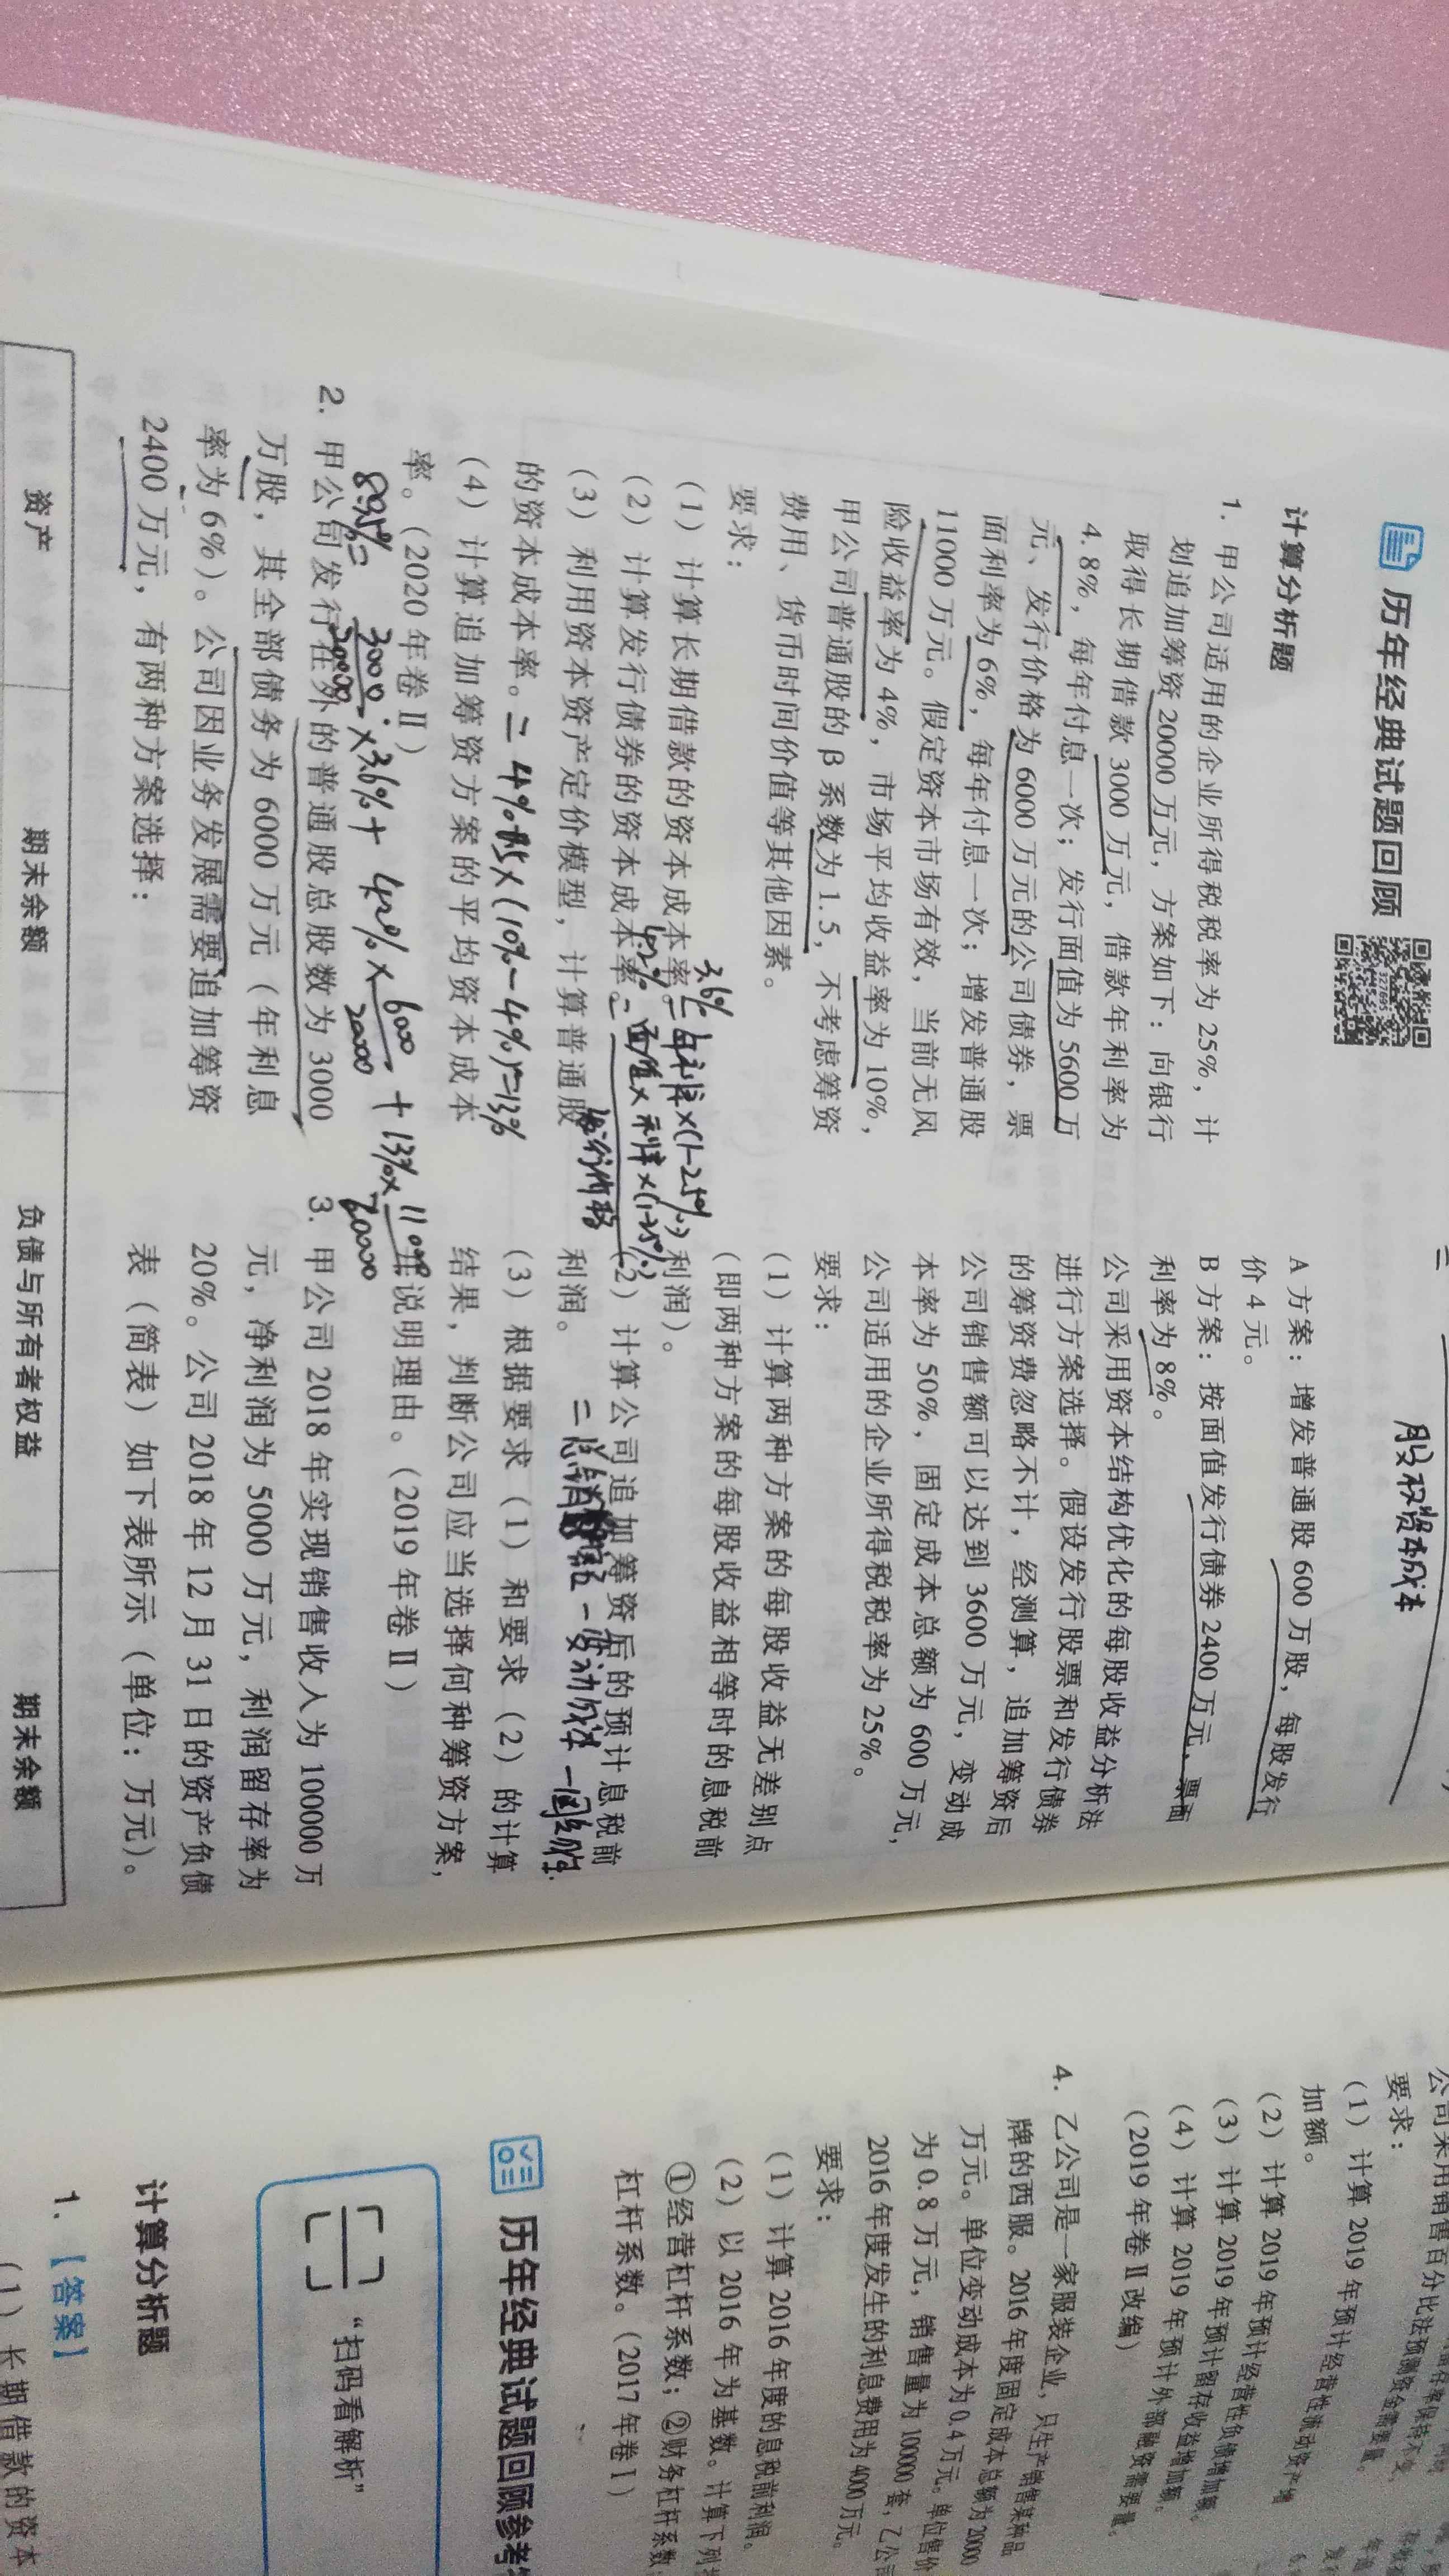 股权资本成本
历年经典试题回顾
计算分析题
1. 甲公司适用的企业所得税税率为 25%，计
划追加筹资 20000 万元，方案如下：向银行
取得长期借款 3000 万元，借款年利率为
4.8%，每年付息一次；发行面值为 5600 万
元、发行价格为 6000 万元的公司债券，票
面利率为 6%，每年付息一次；增发普通股
11000 万元。假定资本市场有效，当前无风
险收益率为 4%，市场平均收益率为 10%，
甲公司普通股的 β 系数为 1.5，不考虑筹资
费用、货币时间价值等其他因素。
要求：
（1）计算长期借款的资本成本率。
3.6% = 年利率×(1-25%)
（2）计算发行债券的资本成本率。
4.2% = 面值×利率×(1-25%)
发行价格
（3）利用资本资产定价模型，计算普通股
的资本成本率。
= 4%+1.5×(10%-4%)=13%
（4）计算追加筹资方案的平均资本成本
率。（2020 年卷Ⅱ）
= 3000/20000 ×3.6% + 4.2%× 6000/20000 + 13%× 11000/20000
2. 甲公司发行在外的普通股总股数为 3000
万股，其全部债务为 6000 万元（年利息
率为 6%）。公司因业务发展需要追加筹资
2400 万元，有两种方案选择：
A 方案：增发普通股 600 万股，每股发行
价 4 元。
B 方案：按面值发行债券 2400 万元，票面
利率为 8%。
公司采用资本结构优化的每股收益分析法
进行方案选择。假设发行股票和发行债券
的筹资费忽略不计，经测算，追加筹资后
公司销售额可以达到 3600 万元，变动成
本率为 50%，固定成本总额为 600 万元，
公司适用的企业所得税税率为 25%。
要求：
（1）计算两种方案的每股收益无差别点
（即两种方案的每股收益相等时的息税前
利润）。
（2）计算公司追加筹资后的预计息税前
利润。
（3）根据要求（1）和要求（2）的计算
结果，判断公司应当选择何种筹资方案，
并说明理由。（2019 年卷Ⅱ）
3. 甲公司 2018 年实现销售收入为 100000 万
元，净利润为 5000 万元，利润留存率为
20%。公司 2018 年 12 月 31 日的资产负债
表（简表）如下表所示（单位：万元）。
资产 期末余额 负债与所有者权益 期末余额
要求：
（1）计算 2019 年预计经营性流动资产增
加额。
（2）计算 2019 年预计经营性负债增加额。
（3）计算 2019 年预计留存收益增加额。
（4）计算 2019 年预计外部融资需要量。
（2019 年卷Ⅱ改编）
4. 乙公司是一家服装企业，只生产销售某种品
牌的西服。2016 年度固定成本总额为 20000
万元。单位变动成本为 0.4 万元。单位售价
为 0.8 万元，销售量为 100000 套，乙公司
2016 年度发生的利息费用为 4000 万元。
要求：
（1）计算 2016 年度的息税前利润。
（2）以 2016 年为基数。计算下列
①经营杠杆系数；②财务杠杆系数
杠杆系数。（2017 年卷Ⅰ）
历年经典试题回顾参考
“扫码看解析”
计算分析题
1. 【答案】
（1）长期借款的资本